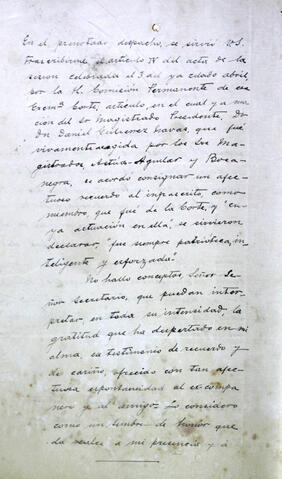 En el prenotado despacho, se sirvió V.S.
transcribirme el artículo IV del acta de la
sesión celebrada el 3 del ya citado abril,
por la H. Comisión Permanente de esa
Excmª Corte, artículo, en el cual y a mo-
ción del Sr Magistrado Presidente, Dr
Dn Daniel Gutiérrez Navas, que fué
vivamente acogida por los Sres Ma-
gistrados Astúa Aguilar y Boca-
negra, se acordó consignar un afec-
tuoso recuerdo al infrascrito, como
miembro que fué de la Corte, y "cu-
ya actuación en ella", se sirvieron
declarar, "fué siempre patriótica, in-
teligente y esforzada".
No hallo conceptos, Señor Se-
ñor Secretario, que puedan inter-
pretar en toda su intensidad la
gratitud que ha despertado en mi
alma, ese testimonio de recuerdo y
de cariño, ofrecido con tan afec-
tuosa espontaneidad al ex-compa-
ñero y al amigo. Lo considero
como un timbre de honor que
da realce a mi presencia y á